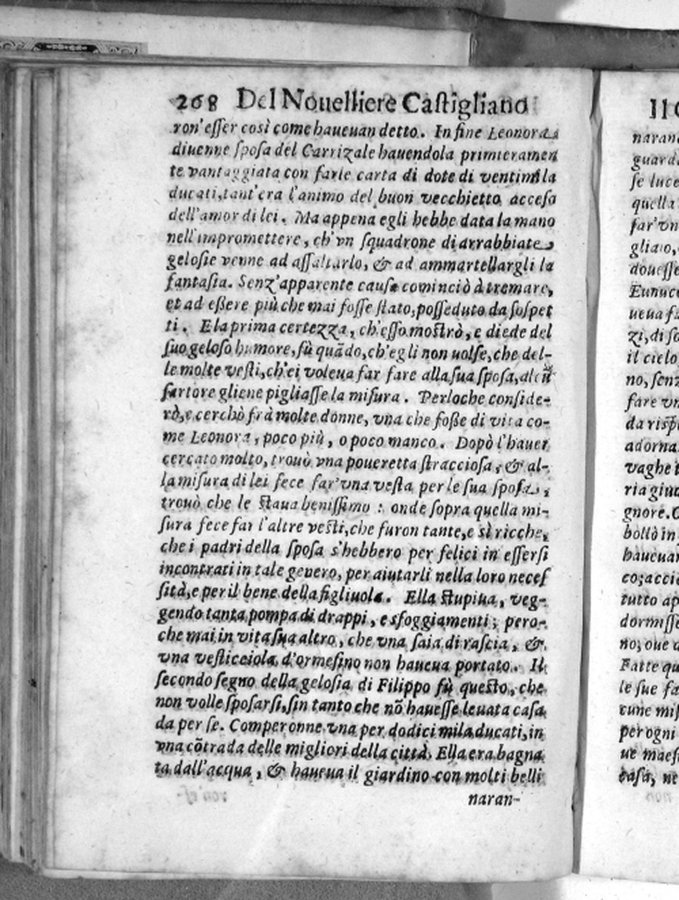 268 Del Nouelliere Castigliano
ron'esser così come haueuan detto. In fine Leonora
diuenne sposa del Carrizale hauendola primieramen
te vantaggiata con farle carta di dote di ventimila
ducati, tant'era l'animo del buon vecchietto acceso
dell'amor di lei. Ma appena egli hebbe data la mano
nell'impromettere, ch'vn squadrone di arrabbiate
gelosie venne ad assaltarlo, & ad ammartellargli la
fantasia. Senz'apparente causa cominciò à tremare,
et ad essere più che mai fosse stato, posseduto da sospet
ti. E la prima certezza, ch'esso mostrò, e diede del
suo geloso humore, fù quãdo, ch'egli non volse, che del-
le molte vesti, ch'ei voleua far fare alla sua sposa, alcũ
sartore gliene pigliasse la misura. Perloche conside-
rò, e cerchò frà molte donne, vna che fosse di vita co-
me Leonora, poco più, o poco manco. Dopò l'hauer
cercato molto, trouò vna poueretta stracciosa, & al-
la misura di lei fece far'vna vesta per le sua sposa,
trouò che le staua benissimo: onde sopra quella mi-
sura fece far l'altre vesti, che furon tante, e sì ricche,
che i padri della sposa s'hebbero per felici in essersi
incontrati in tale genero, per aiutarli nella loro necess
sità, e per il bene della figliuola. Ella stupiua, veg-
gendo tanta pompa di drappi, e sfoggiamenti; pero-
che mai in vita sua altro, che vna saia di rascia, &
vna vesticciola d'ormesino non haueua portato. Il
secondo segno della gelosia di Filippo fù questo, che
non volle sposarsi, sin tanto che nõ hauesse leuata casa
da per se. Comperonne vna per dodici mila ducati, in
vna cõtrada delle migliori della città. Ella era bagna
ta dall'acqua, & haueua il giardino con molti belli
naran-
Il
naran
guard
se luce
quella
far'vn
gliaio,
douesse
Eunuc
ueua fa
zi, di so
il cielo
no, senz
fare vn
adorna
vaghe
ria giud
gnore. C
bollò in
haueuan
co; acciò
tutto ap
dormisse
no, oue
Fatte qu
le sue fa
cune mis
per ogni
ue maes
casa, ne